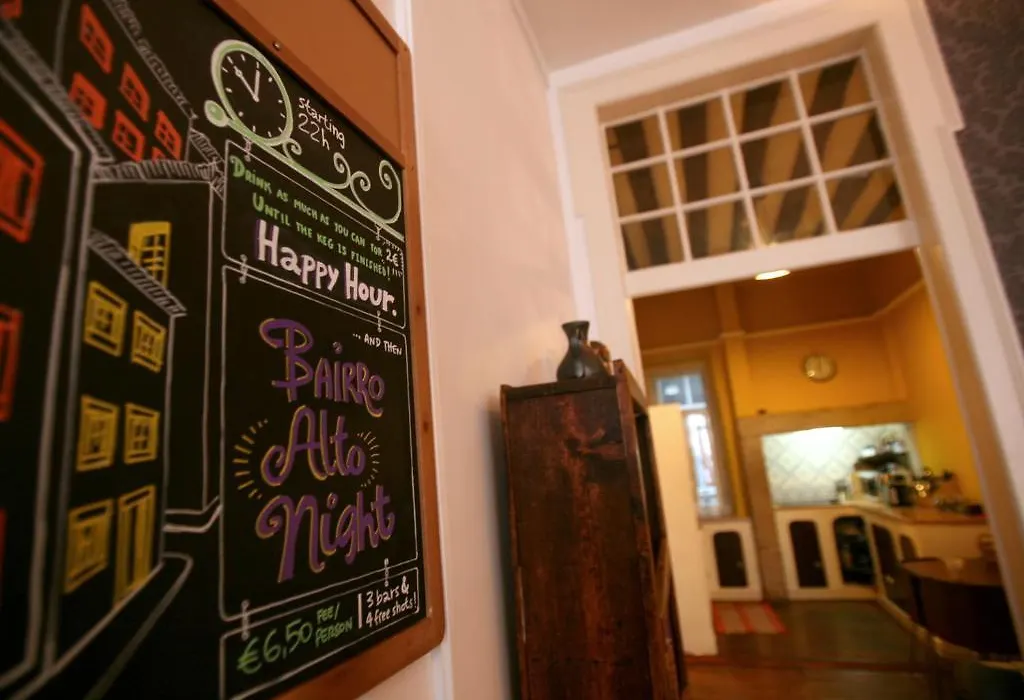 starting
22h
DRINK AS MUCH AS YOU CAN FOR 2€
UNTIL THE KEG IS FINISHED!
Happy Hour.
... AND THEN
BAIRRO
Alto
Night
€6,50 FEE/
PERSON
3 bars &
4 free shots!